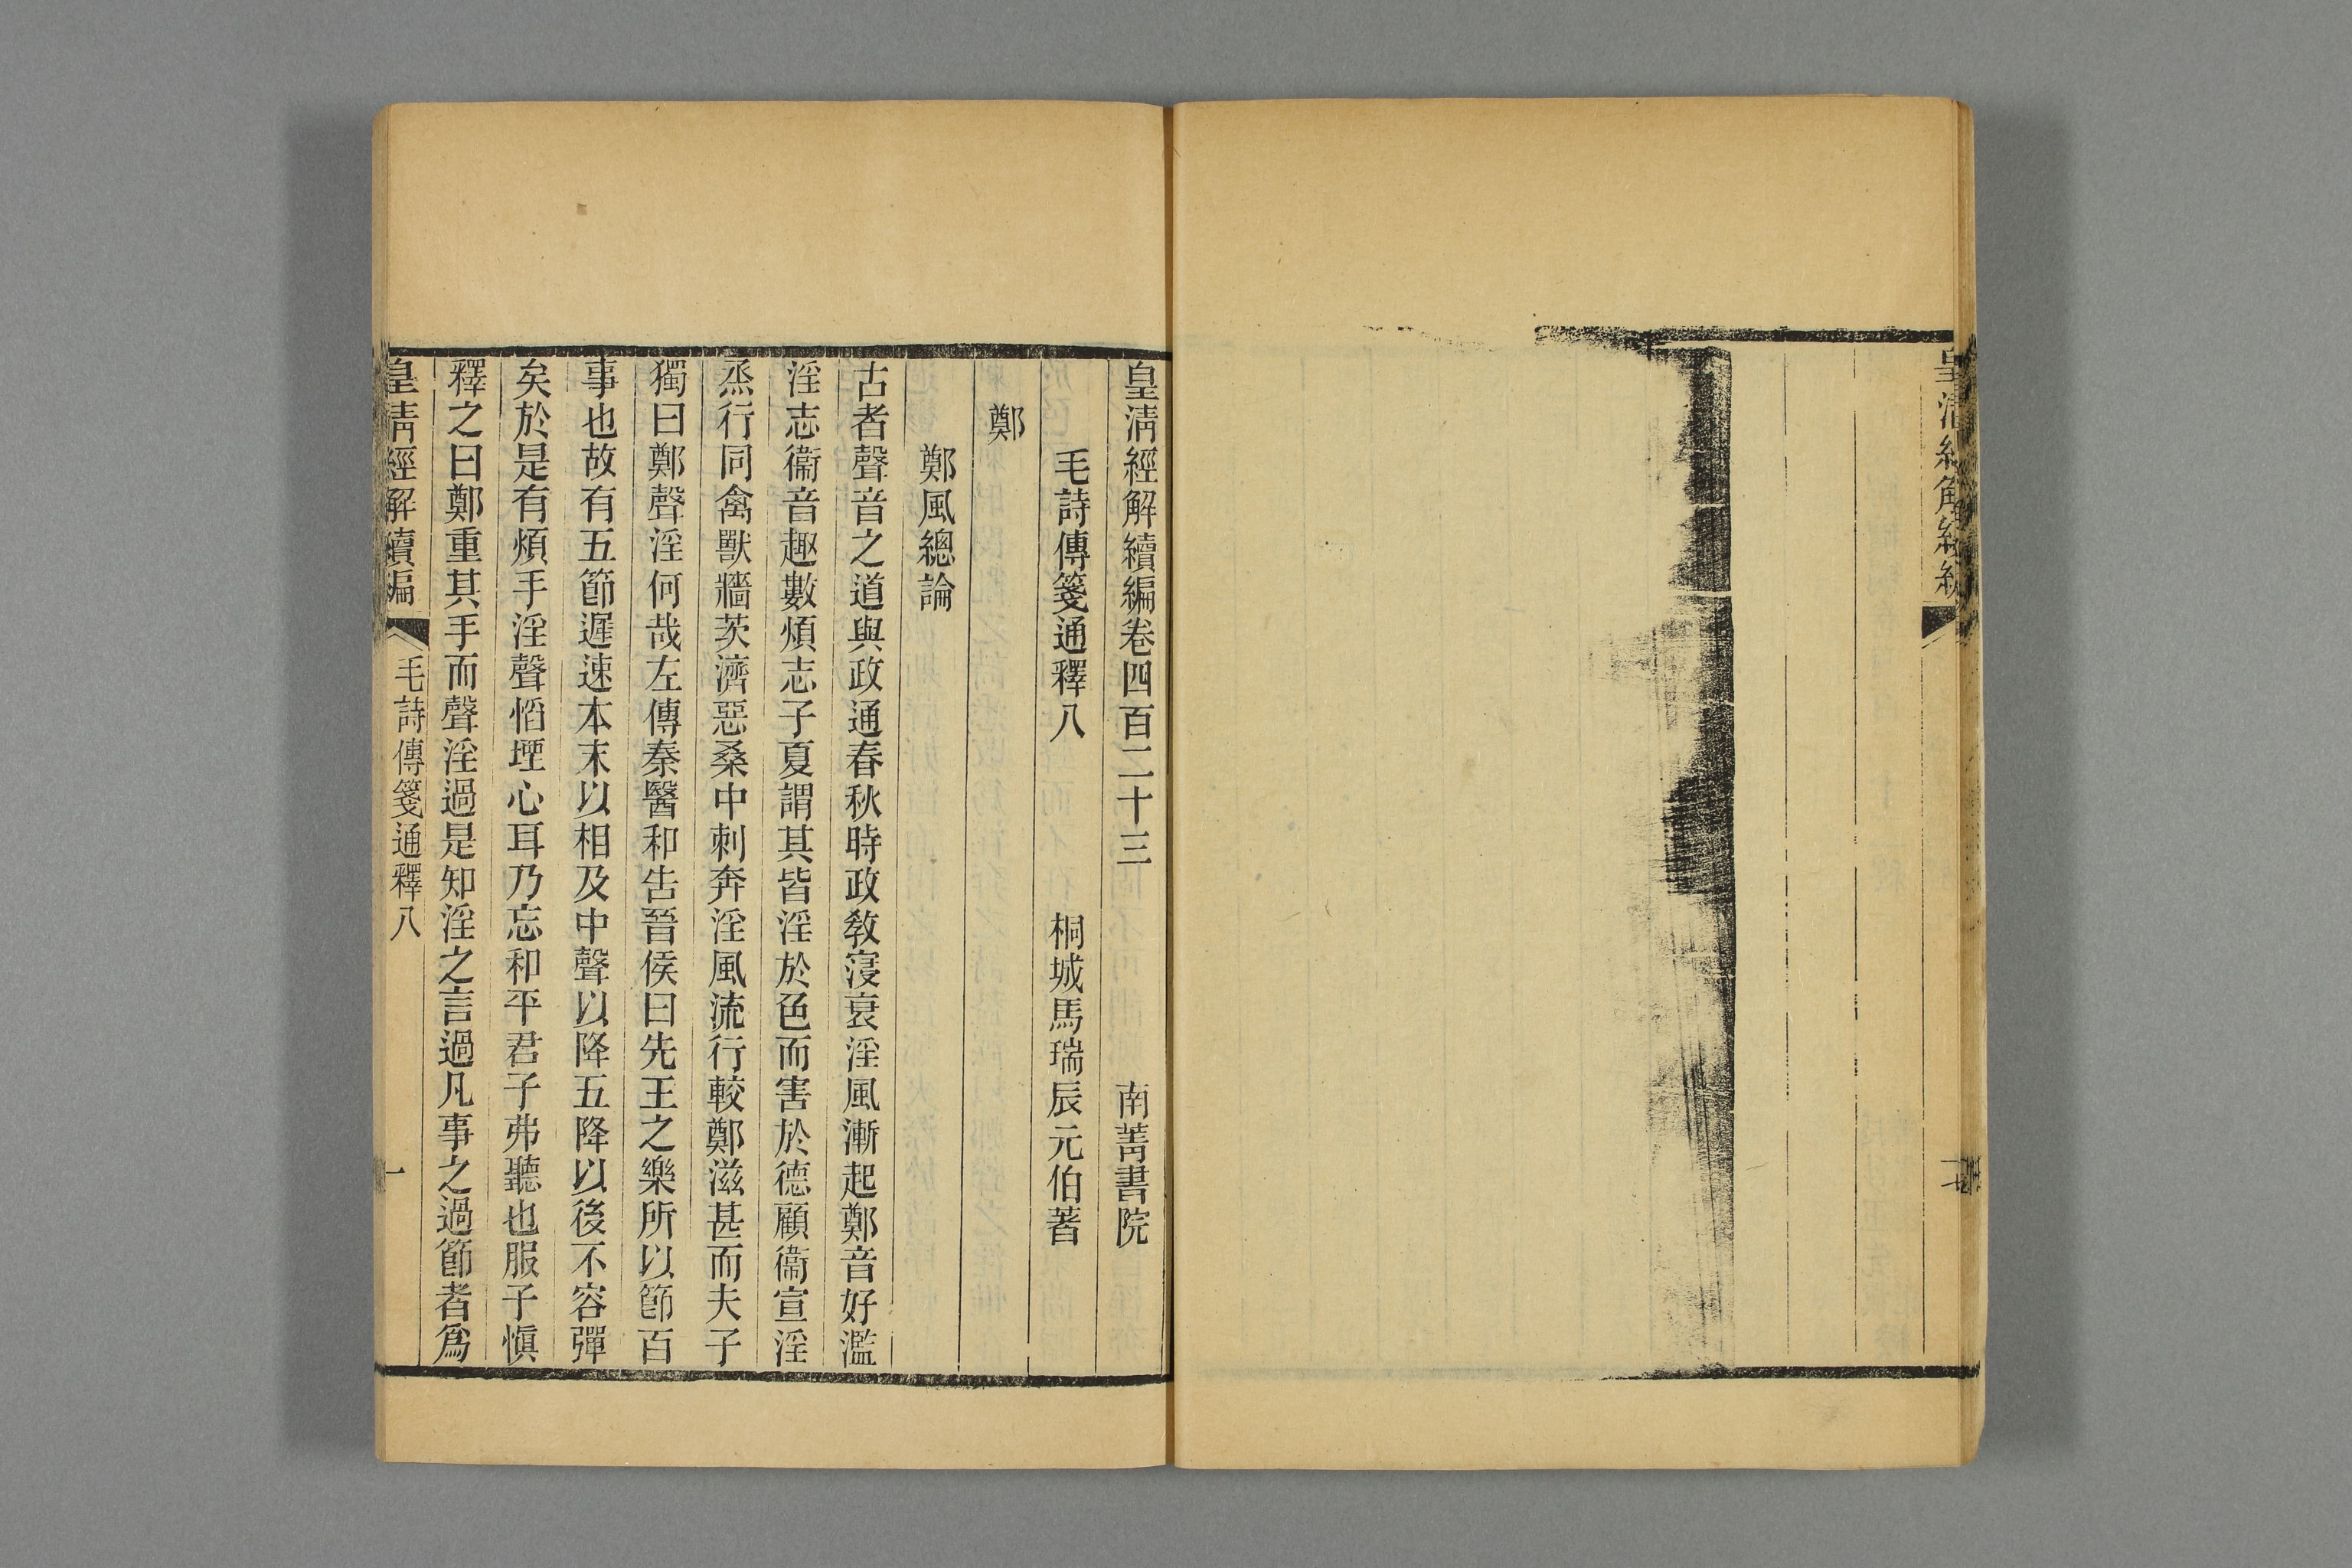 皇清經解續編卷四百二十三　南菁書院
毛詩傳箋通釋八　桐城馬瑞辰元伯著
鄭
鄭風總論
古者聲音之道與政通春秋時政教寖衰淫風漸起鄭音好濫
淫志衞音趣數煩志子夏謂其皆淫於色而害於德顧衞宣淫
烝行同禽獸牆茨濟惡桑中刺奔淫風流行較鄭滋甚而夫子
獨曰鄭聲淫何哉左傳秦醫和告晉侯曰先王之樂所以節百
事也故有五節遲速本末以相及中聲以降五降以後不容彈
矣於是有煩手淫聲慆堙心耳乃忘和平君子弗聽也服子愼
釋之曰鄭重其手而聲淫過是知淫之言過凡事之過節者爲
皇清經解續編　毛詩傳箋通釋八　一